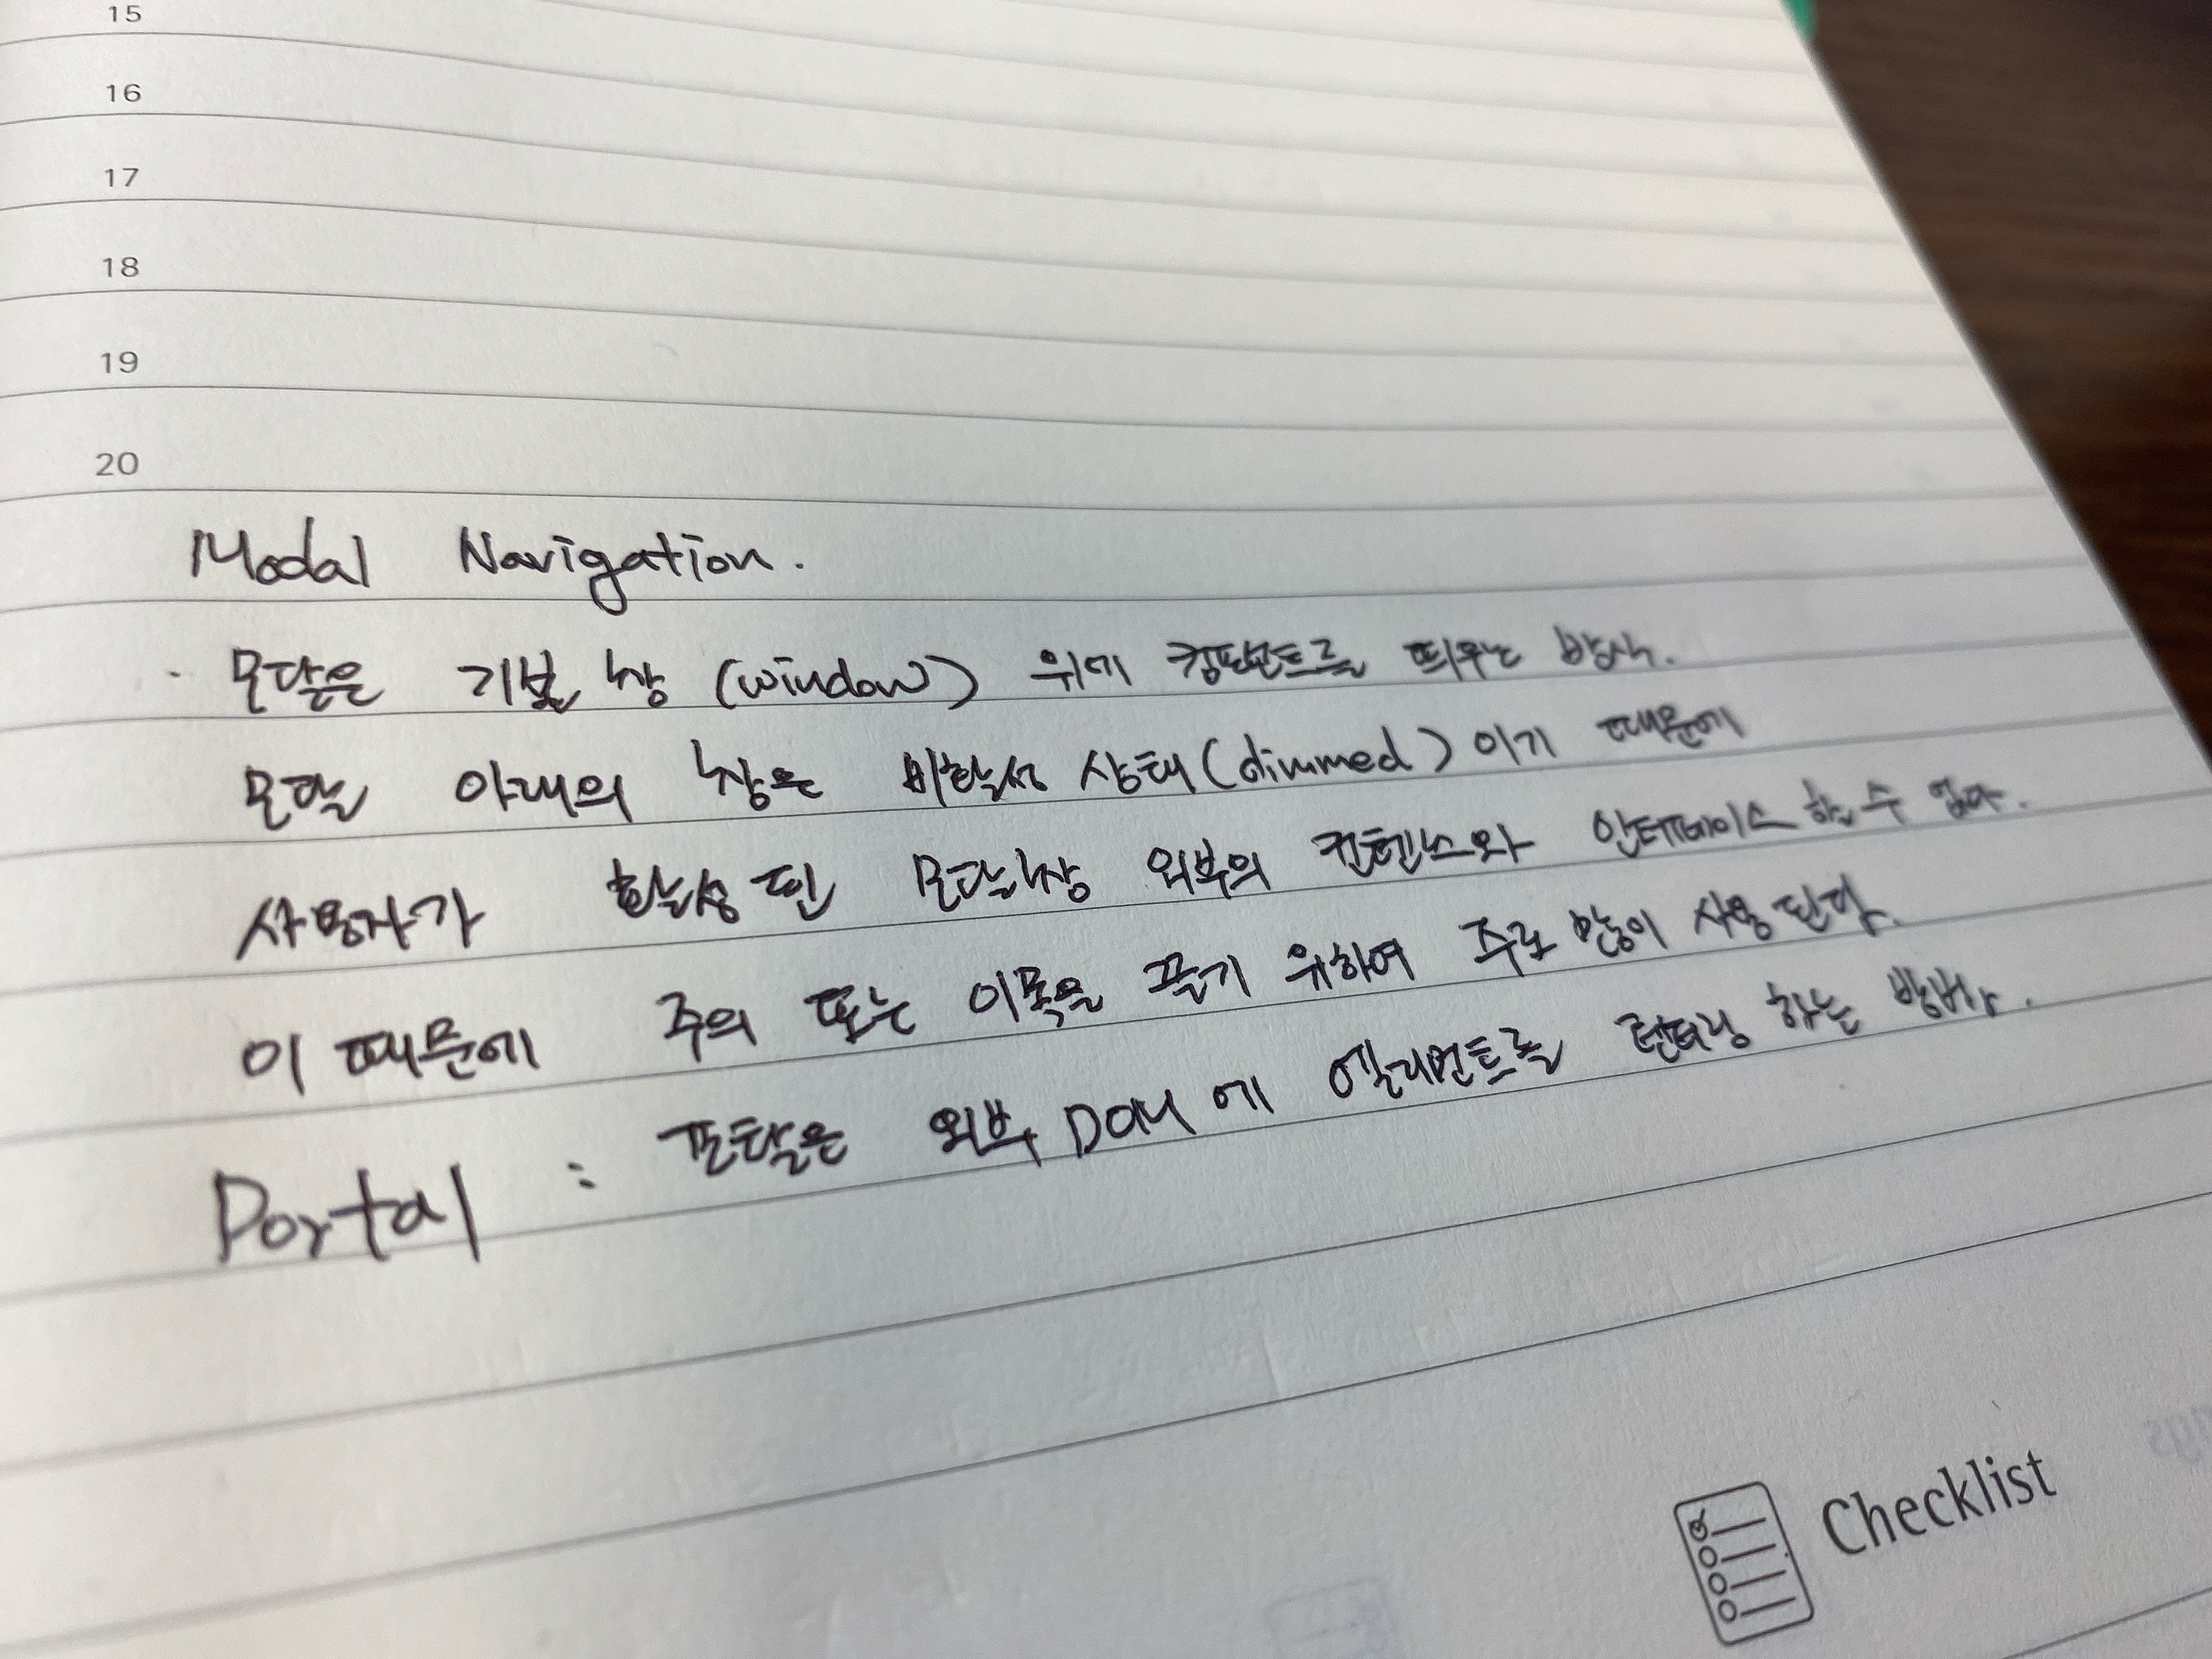 15
16
17
18
19
20
Modal Navigation.
· 모달은 기본 창 (window) 위에 컴포넌트를 띄우는 방식.
모달 아래의 창은 비활성 상태(dimmed) 이기 때문에
사용자가 활성 된 모달창 외부의 컨텐츠와 인터페이스 할 수 없다.
이 때문에 주의 또는 이목을 끌기 위하여 주로 많이 사용 된다.
Portal : 포탈은 외부 DOM 에 엘리먼트를 렌더링 하는 방법.
Checklist